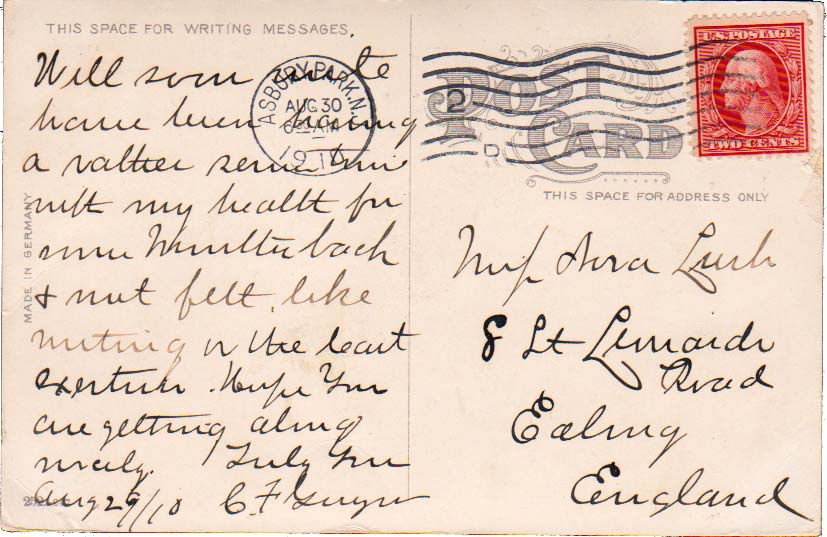 THIS SPACE FOR WRITING MESSAGES.
Will soon write
have been having
a rather serious time
with my health for
some months back
& not felt like
writing or the least
exertion. Hope you
are getting along
nicely. Truly you
Aug 29/10 C F
MADE IN GERMANY
ASBURY PARK, N.J.
AUG 30
6 AM
1910
2
D
POST CARD
U.S. POSTAGE
TWO CENTS
THIS SPACE FOR ADDRESS ONLY
Miss Nora Lush
8 St Leonards
Road
Ealing
England